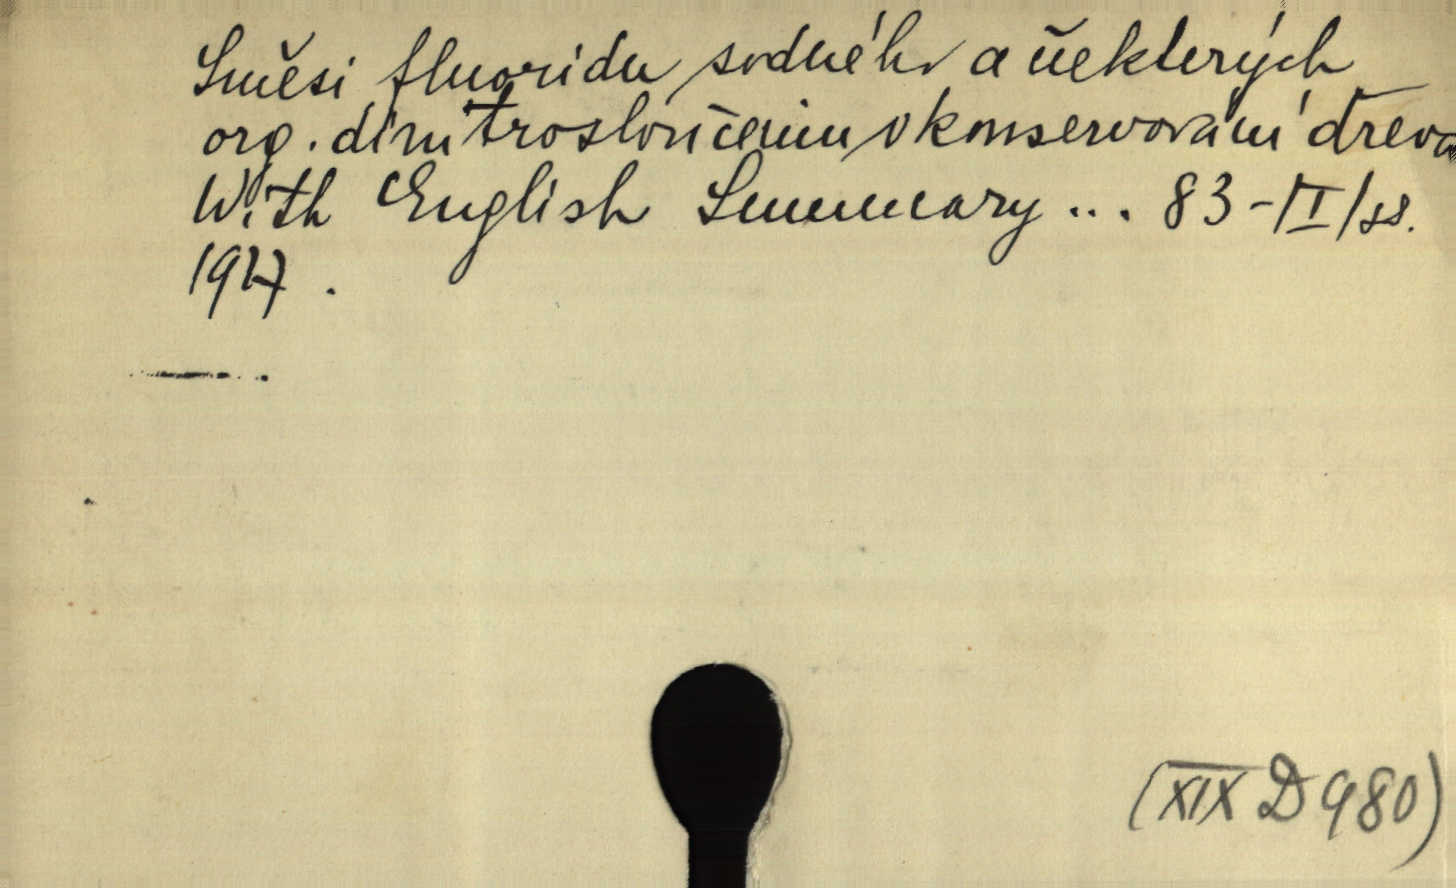 Směsi fluoridu sodného a některých
org. dinitrosloučenin v konservování dřeva
With English Summary ... 83 - II/ss.
1947.
(XIX D 980)